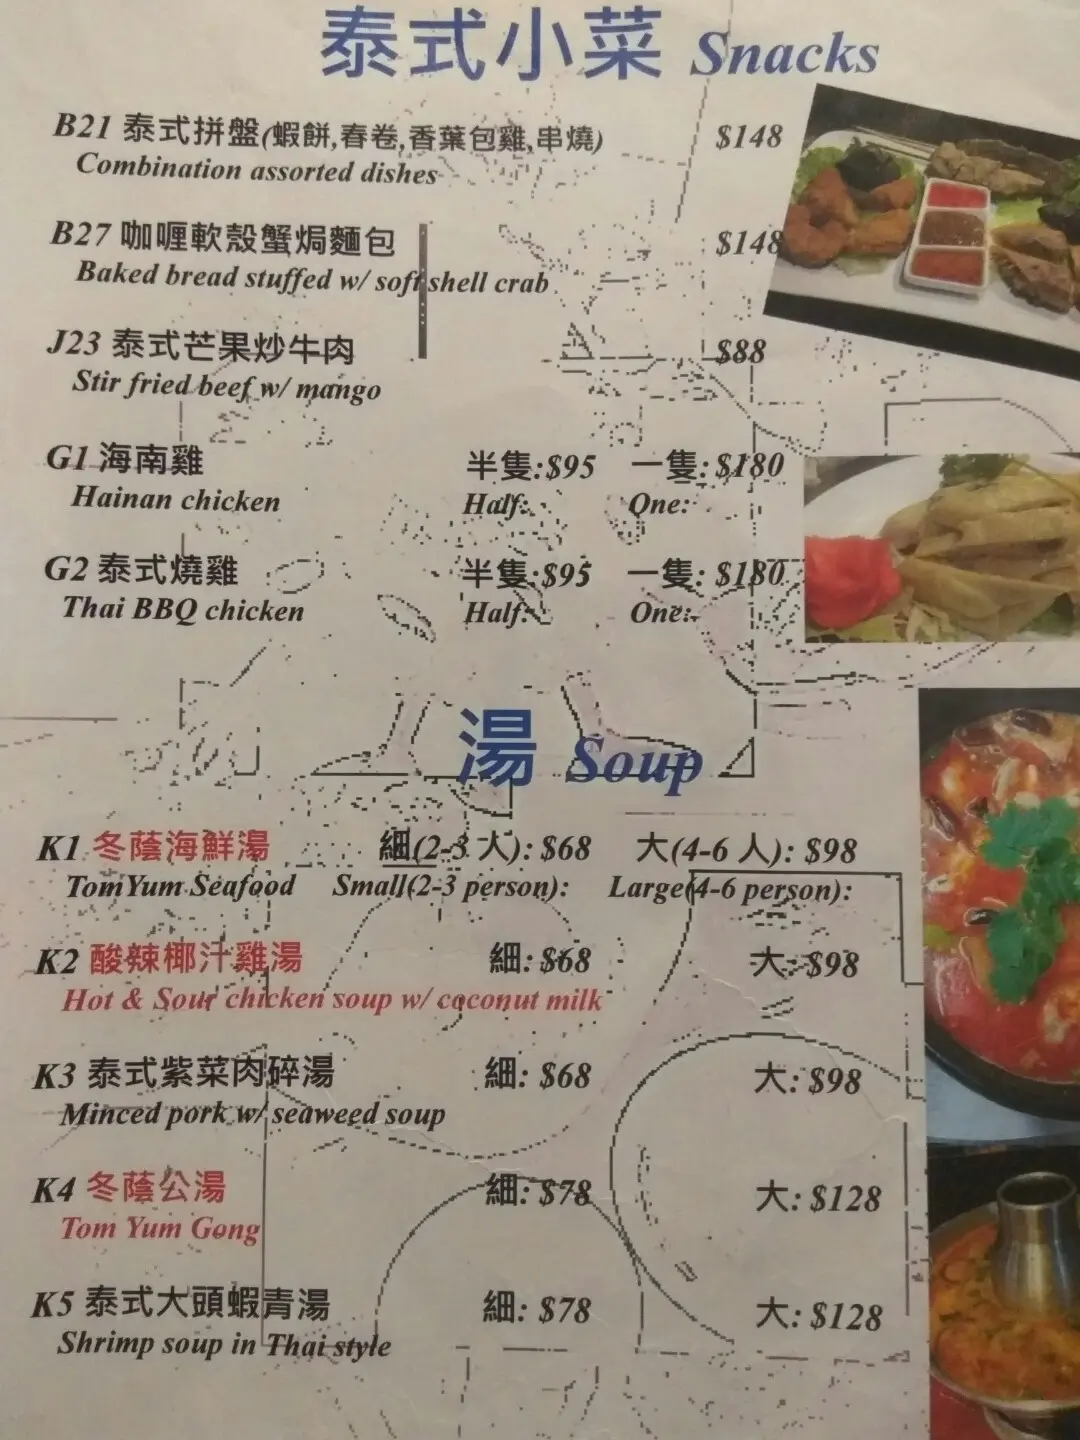 泰式小菜 Snacks
B21 泰式拼盤(蝦餅,春卷,香葉包雞,串燒) $148
Combination assorted dishes
B27 咖喱軟殼蟹焗麵包 $148
Baked bread stuffed w/ soft shell crab
J23 泰式芒果炒牛肉 $88
Stir fried beef w/ mango
G1 海南雞 半隻:$95 一隻: $180
Hainan chicken Half: One:
G2 泰式燒雞 半隻:$95 一隻: $180
Thai BBQ chicken Half: One:
湯 Soup
K1 冬蔭海鮮湯 細(2-3 人): $68 大(4-6 人): $98
TomYum Seafood Small(2-3 person): Large(4-6 person):
K2 酸辣椰汁雞湯 細: $68 大: $98
Hot & Sour chicken soup w/ coconut milk
K3 泰式紫菜肉碎湯 細: $68 大: $98
Minced pork w/ seaweed soup
K4 冬蔭公湯 細: $78 大: $128
Tom Yum Gong
K5 泰式大頭蝦青湯 細: $78 大: $128
Shrimp soup in Thai style